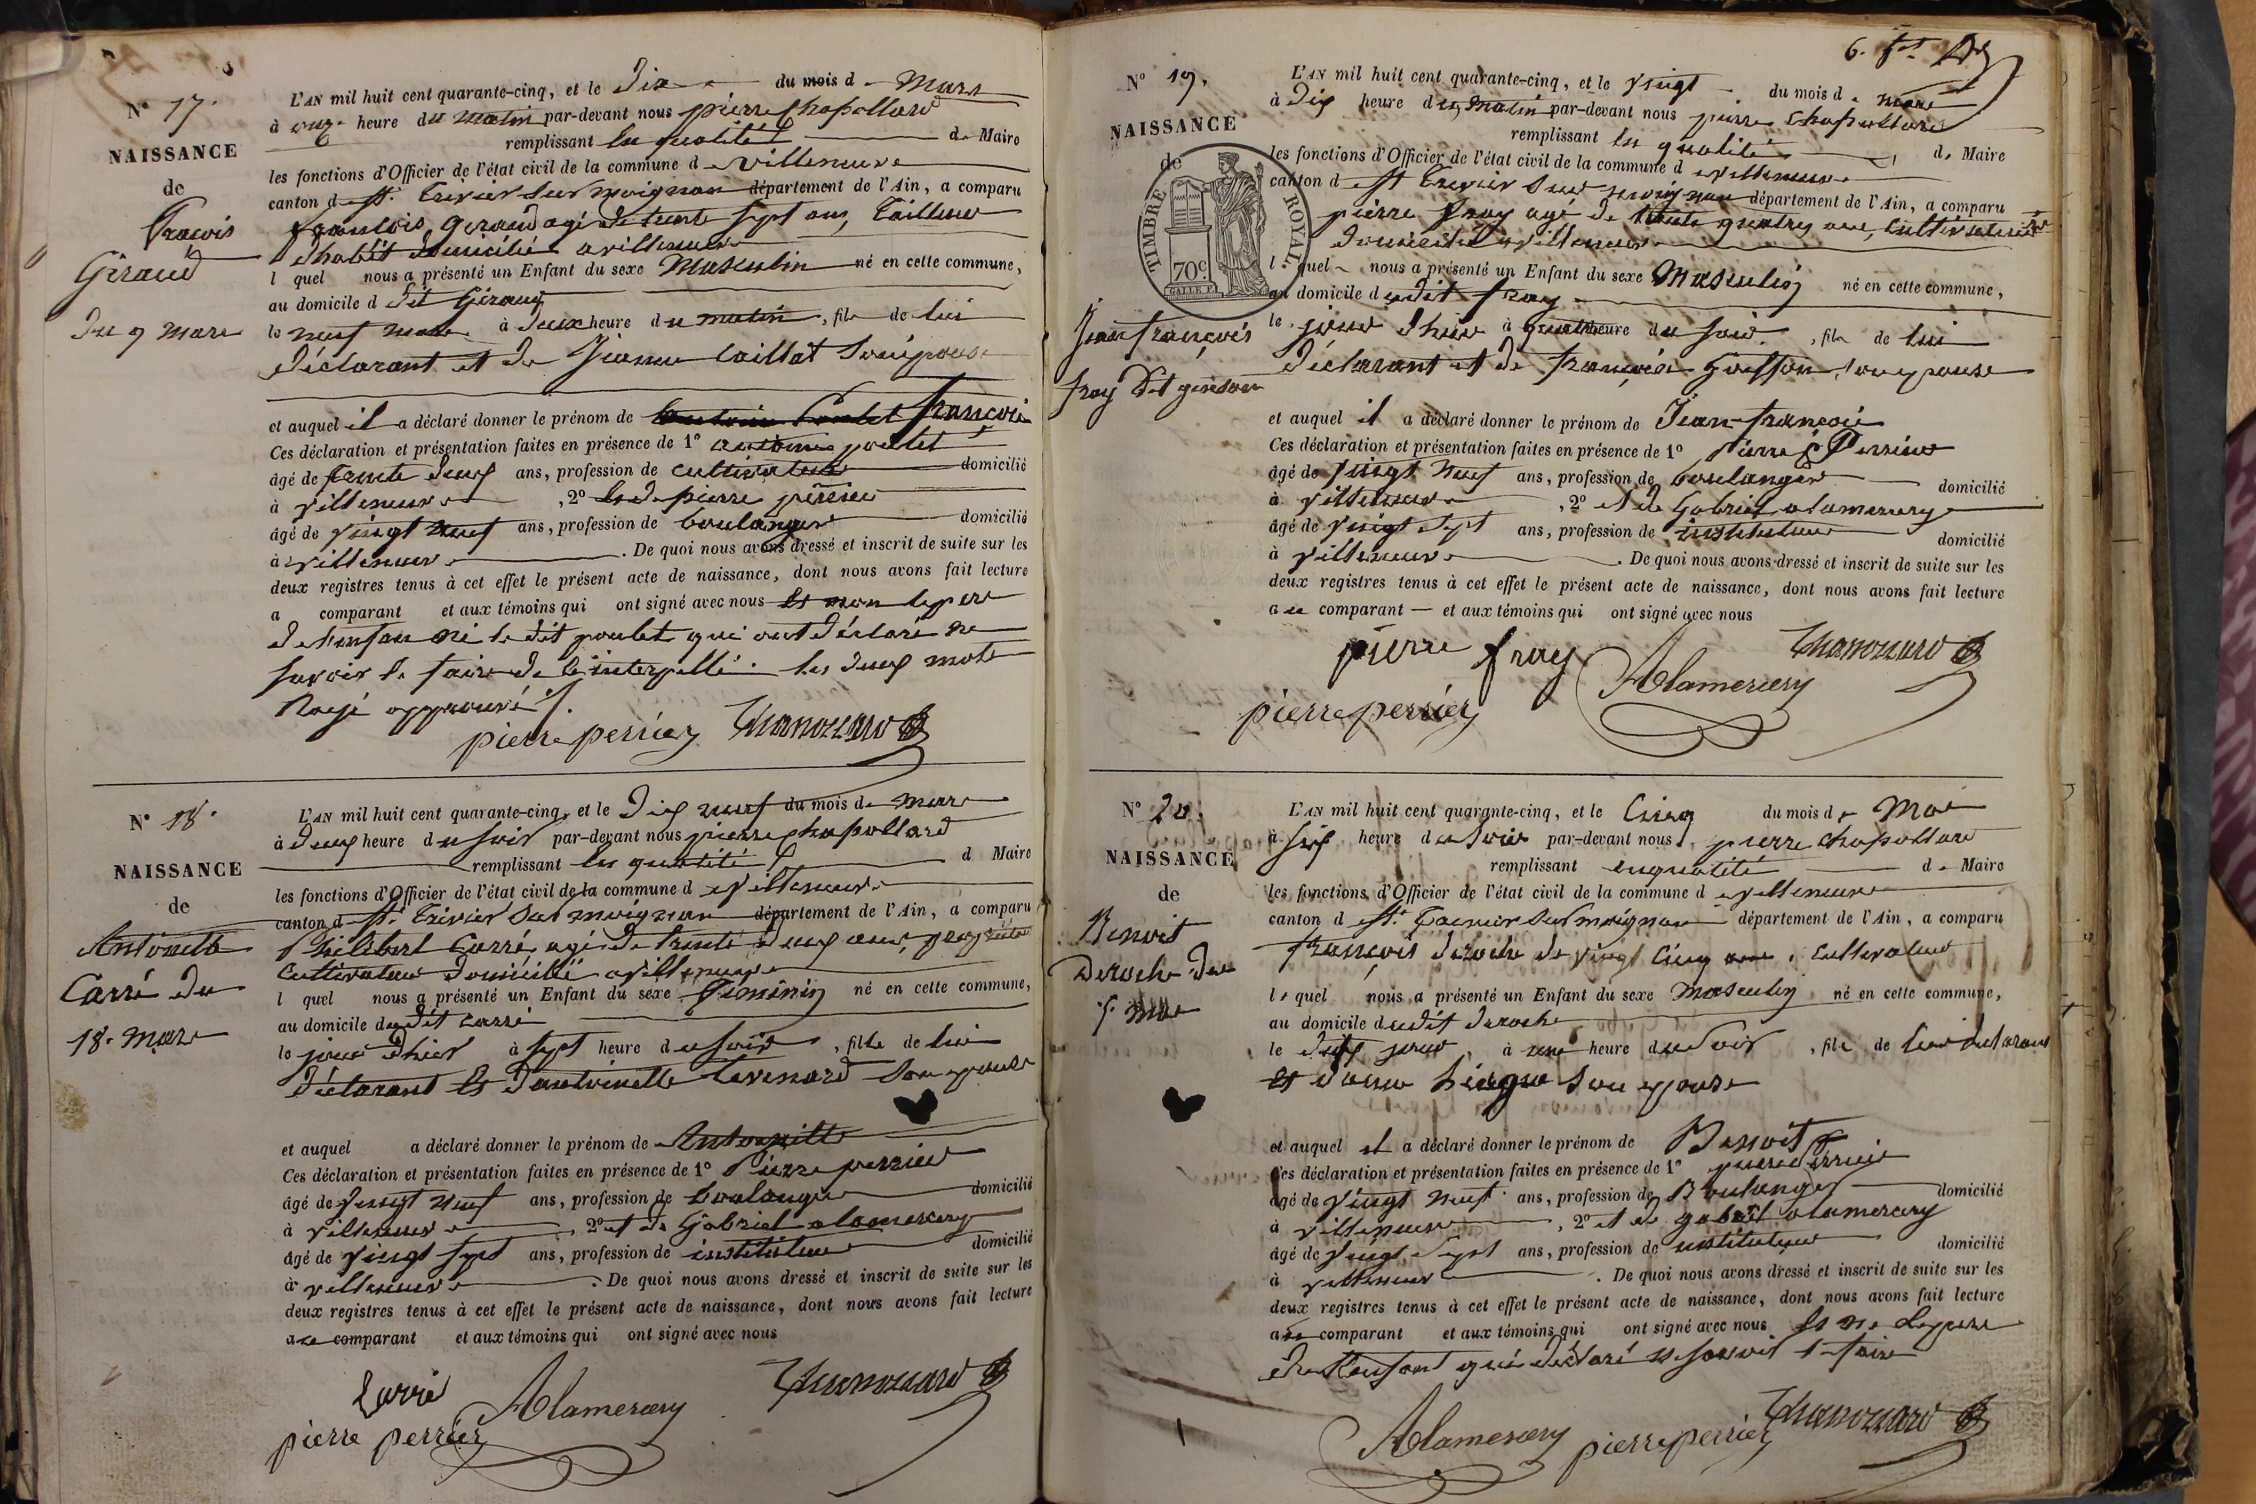 N° 17.
NAISSANCE
de
François
Giraud
du 9 mars
L'AN mil huit cent quarante-cinq, et le dix du mois de Mars
à onze heure du matin par-devant nous pierre Chapollard
remplissant en qualité de Maire
les fonctions d'Officier de l'état civil de la commune de villeneuve
canton de St. Trivier sur moignan département de l'Ain, a comparu
francois Giraud agé de trente sept ans, Tailleur
d'habit domicilié a villeneuve
l quel nous a présenté un Enfant du sexe Masculin né en cette commune,
au domicile d dit Giraud
le neuf mars à deux heure du matin, fils de lui
déclarant et de Jeanne Caillat son épouse
et auquel il a déclaré donner le prénom de françois
Ces déclaration et présentation faites en présence de 1° antoine poulet
âgé de trente deux ans, profession de cultivateur domicilié
à villeneuve, 2° et de pierre perrier
âgé de vingt neuf ans, profession de boulanger domicilié
à villeneuve. De quoi nous avons dressé et inscrit de suite sur les
deux registres tenus à cet effet le présent acte de naissance, dont nous avons fait lecture
a comparant et aux témoins qui ont signé avec nous et non le pere
de l'enfan ni le dit poulet qui ont déclaré ne
savoir le faire de ce interpellé. les deux mots
Rayé approuvé
pierre perrier
N° 18.
NAISSANCE
de
Antoinette
Carré du
18. mars
L'AN mil huit cent quarante-cinq, et le dix neuf du mois de mars
à deux heure du soir par-devant nous pierre chapollard
remplissant en qualité d Maire
les fonctions d'Officier de l'état civil de la commune de villeneuve
canton d St. Trivier sur moignan département de l'Ain, a comparu
Philibert Carré agé de trente deux ans, propriétaire
cultivateur domicilié a villeneuve
l quel nous a présenté un Enfant du sexe féminin né en cette commune,
au domicile du dit carré
le jour d'hier à sept heure du soir, fille de lui
déclarant et d'antoinette Tavenard son épouse
et auquel a déclaré donner le prénom de Antoinette
Ces déclaration et présentation faites en présence de 1° Pierre perrier
âgé de vingt neuf ans, profession de boulanger domicilié
à villeneuve, 2° et de Gabriel alamercery
âgé de vingt sept ans, profession de instituteur domicilié
à villeneuve. De quoi nous avons dressé et inscrit de suite sur les
deux registres tenus à cet effet le présent acte de naissance, dont nous avons fait lecture
au comparant et aux témoins qui ont signé avec nous
Carré
Alamercery
pierre perrier
6.
N° 19.
NAISSANCE
de
TIMBRE ROYAL.
70c.
Jean françois
fray dit
L'AN mil huit cent quarante-cinq, et le vingt du mois de mars
à dix heure du matin par-devant nous pierre Chapollard
remplissant en qualité de Maire
les fonctions d'Officier de l'état civil de la commune d villeneuve
canton d St Trivier sur moignan département de l'Ain, a comparu
pierre fray agé de trente quatre ans, cultivateur
domicilié a villeneuve
l quel nous a présenté un Enfant du sexe Masculin né en cette commune,
au domicile dudit fray
le jour d'hier à quatre heure du soir, fils de lui
déclarant et de françoise Goiffon son épouse
et auquel il a déclaré donner le prénom de Jean-françois
Ces déclaration et présentation faites en présence de 1° Pierre Perrier
âgé de vingt neuf ans, profession de boulanger domicilié
à villeneuve, 2° et de Gabriel alamercery
âgé de vingt sept ans, profession de instituteur domicilié
à villeneuve. De quoi nous avons dressé et inscrit de suite sur les
deux registres tenus à cet effet le présent acte de naissance, dont nous avons fait lecture
au comparant et aux témoins qui ont signé avec nous
pierre fray
Alamercery
pierre perrier
N° 20.
NAISSANCE
de
Benoit
Deroche du
5. mai
L'AN mil huit cent quarante-cinq, et le Cinq du mois de Mai
à six heure du soir par-devant nous pierre chapollard
remplissant en qualité de Maire
les fonctions d'Officier de l'état civil de la commune d villeneuve
canton d St. Trivier sur moignan département de l'Ain, a comparu
françois deroche de vingt cinq ans, cultivateur
le quel nous a présenté un Enfant du sexe masculin né en cette commune,
au domicile dudit deroche
le dit jour, à une heure du soir, fils de lui déclarant
et son épouse
et auquel il a déclaré donner le prénom de Benoit
Ces déclaration et présentation faites en présence de 1° pierre Perrier
âgé de vingt neuf ans, profession de Boulanger domicilié
à villeneuve, 2° et de gabriel alamercery
âgé de vingt sept ans, profession de instituteur domicilié
à villeneuve. De quoi nous avons dressé et inscrit de suite sur les
deux registres tenus à cet effet le présent acte de naissance, dont nous avons fait lecture
au comparant et aux témoins qui ont signé avec nous et no le pere
de l'enfant qui a déclaré ne savoir le faire
Alamercery
pierre perrier